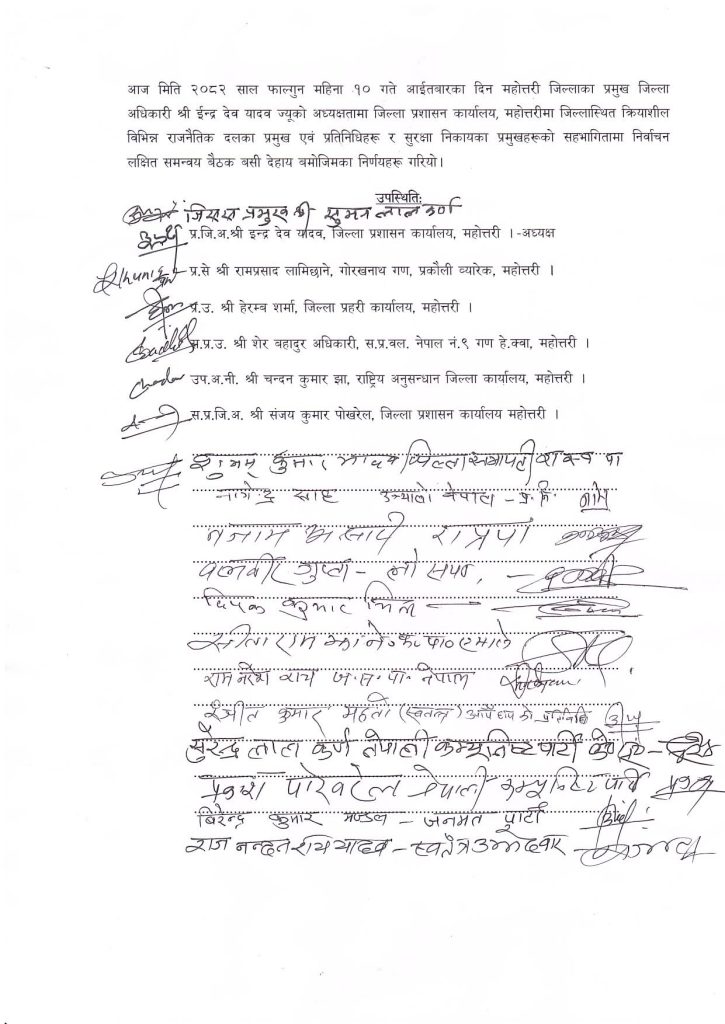 आज मिति २०८२ साल फाल्गुन महिना १० गते आईतबारका दिन महोत्तरी जिल्लाका प्रमुख जिल्ला
अधिकारी श्री ईन्द्र देव यादव ज्यूको अध्यक्षतामा जिल्ला प्रशासन कार्यालय, महोत्तरीमा जिल्लास्थित क्रियाशील
विभिन्न राजनैतिक दलका प्रमुख एवं प्रतिनिधिहरू र सुरक्षा निकायका प्रमुखहरूको सहभागितामा निर्वाचन
लक्षित समन्वय बैठक बसी देहाय बमोजिमका निर्णयहरू गरियो।
उपस्थितिः
जिसस प्रमुख श्री सुमन लाल कर्ण
प्र.जि.अ.श्री इन्द्र देव यादव, जिल्ला प्रशासन कार्यालय, महोत्तरी । -अध्यक्ष
प्र.से श्री रामप्रसाद लामिछाने, गोरखनाथ गण, प्रकौली व्यारेक, महोत्तरी ।
प्र.उ. श्री हेरम्ब शर्मा, जिल्ला प्रहरी कार्यालय, महोत्तरी ।
स.प्र.उ. श्री शेर बहादुर अधिकारी, स.प्र.वल. नेपाल नं.९ गण हे.क्वा, महोत्तरी ।
उप.अ.नी. श्री चन्दन कुमार झा, राष्ट्रिय अनुसन्धान जिल्ला कार्यालय, महोत्तरी ।
स.प्र.जि.अ. श्री संजय कुमार पोखरेल, जिल्ला प्रशासन कार्यालय महोत्तरी ।
कुमार यादव जिल्ला सभापती
नागेन्द्र साह उज्यालो नेपाल - प्र. नि.
राप्रपा
गुप्ता - लोसपा
दिपक कुमार
सीता राम झा ने.क.पा. एमाले
राम नरेश राय ज. स. पा. नेपाल
रंजीत कुमार महतो (स्वतन्त्र)
सुरेन्द्र लाल कर्ण नेपाली कम्युनिष्ट पार्टी
नेपाली कम्युनिष्ट पार्टी
विरेन्द्र कुमार मण्डल - जनमत पार्टी
राज नन्दन राय यादव - स्वतंत्र उम्मेदवार